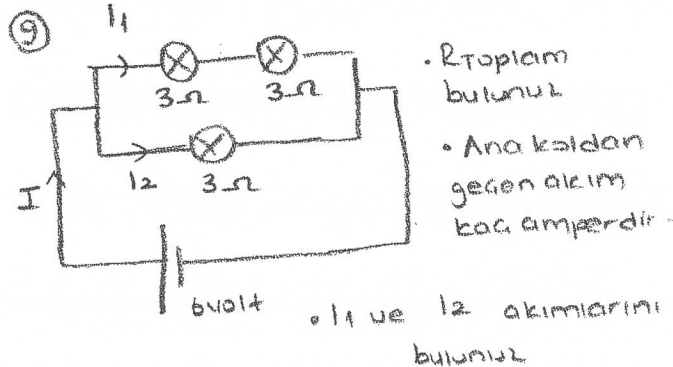 9
I1
3Ω 3Ω
I2 3Ω
I
6volt
• RToplam
bulunuz
• Ana koldan
geçen akım
kaç amperdir
• I1 ve I2 akımlarını
bulunuz